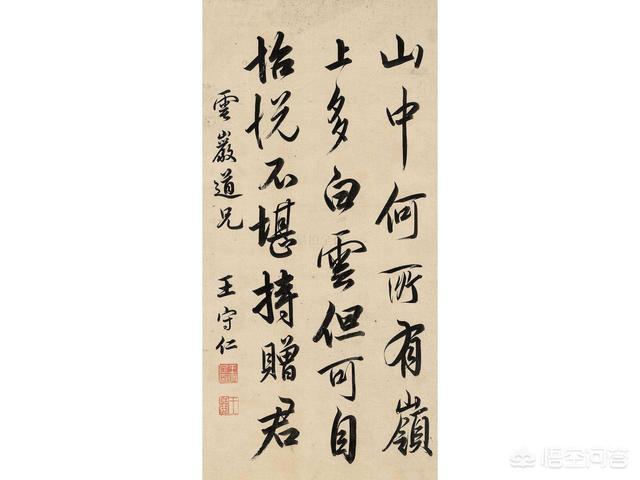 山中何所有嶺
上多白雲但可自
怡悦不堪持贈君
雲巖道兄 王守仁
悟空问答